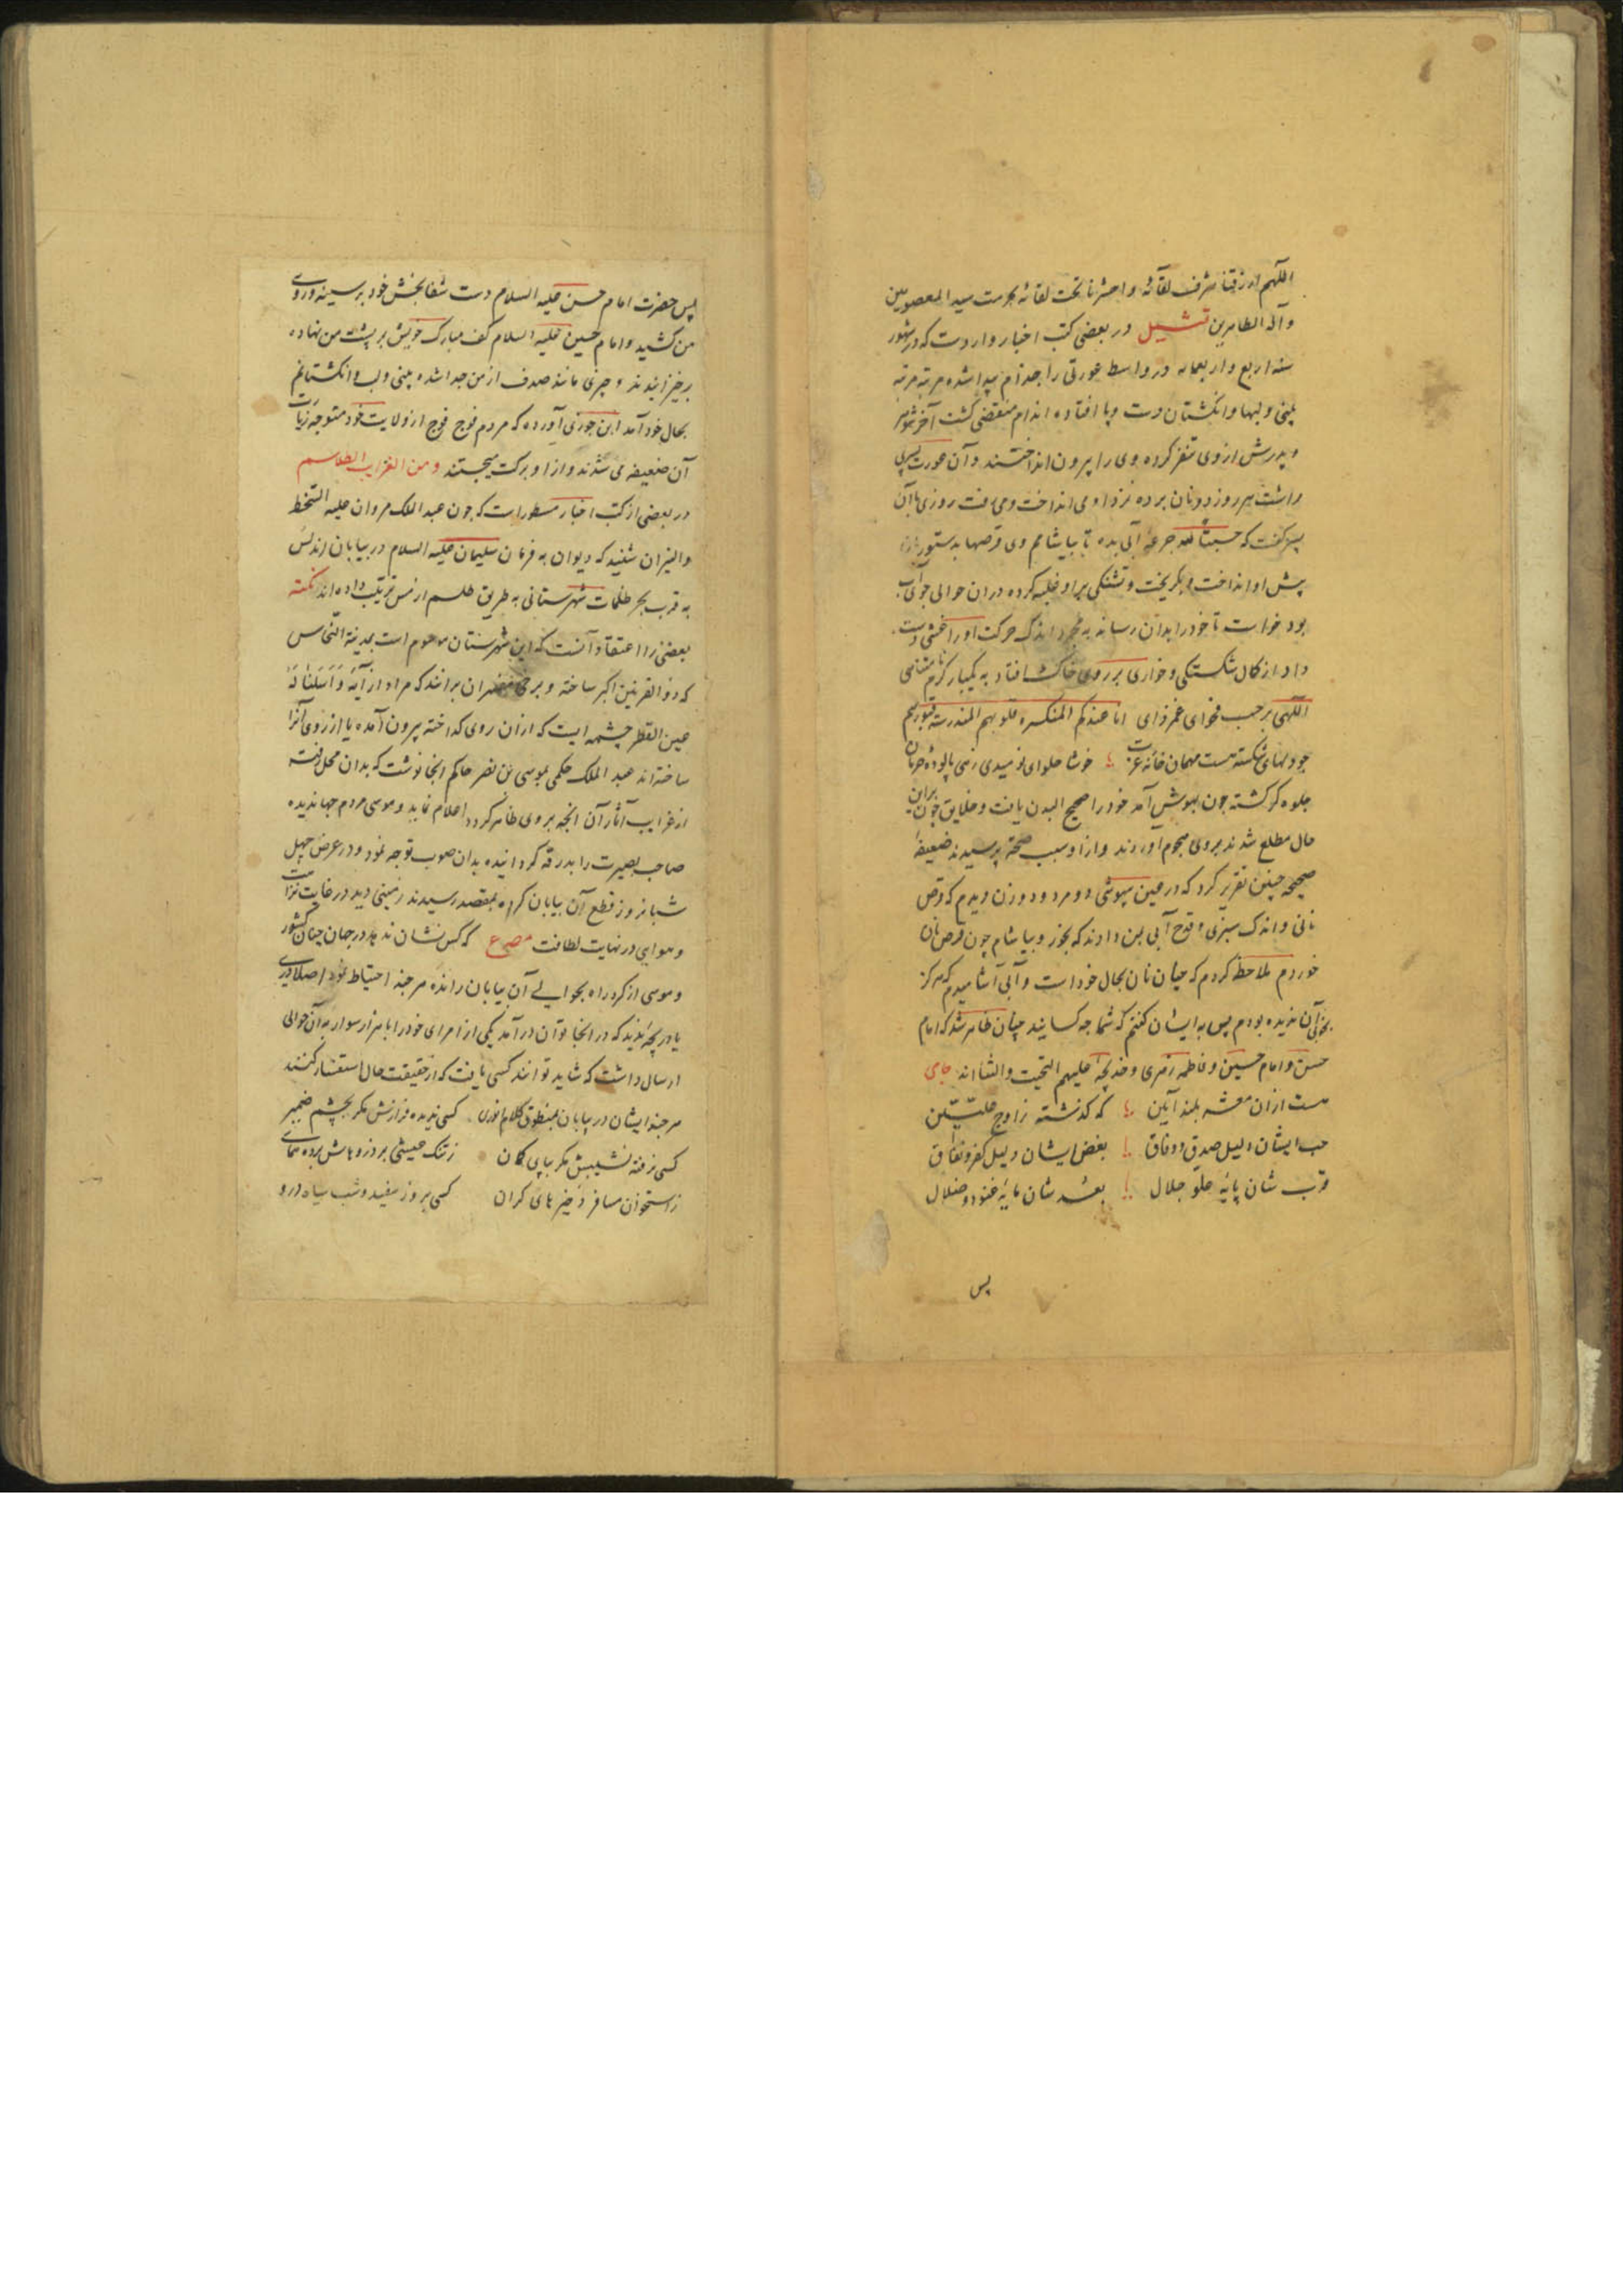 اللهم ارزقنا شرف لقائه واحشرنا تحت لقائه بحرمت سید المعصومین
وآله الطاهرین تمثیل در بعضی کتب اخبار واردست که در شهور
سنه اربع واربعمایه در واسط عورتی را جذام پیدا شده مرتبه مرتبه
بینی ولبها وانگشتان دست وپا افتاده اندام متعفن گشت آخر شوهر
وپدرش از وی تنفر کرده وی را بیرون انداختند وآن عورت پسری
داشت هر روز دو نان برده نزد او می انداخت ومی رفت روزی باآن
پسر گفت که حسبتاً لله جرعه آبی بده تا بیاشامم وی قرصها بدستور
پیش او انداخت وبگریخت وتشنگی بر او غلبه کرده دران حوالی جوی آب
بود خواست تا خود را بدان رساند به مجرد اندک حرکت او را غشی دست
داد از کمال شکستگی وخواری بر روی خاک افتاد به یکبار کرم نامتناهی
اللهی بر حسب فحوای انا عندکم المنکسره قلوبهم المندرسه قبورهم
جو دلهای شکسته هست مهمان خانه عزت خوشا حلوای نومیدی زهی پالوده حرمان
جلوه گر گشته چون بهوش آمد خود را صحیح البدن یافت وخلایق چون براین
حال مطلع شدند بر وی هجوم آوردند واز او سبب صحت پرسیدند ضعیفه
صحیحه چنین تقریر کرد که در عین بیهوشی دو مرد ودو زن دیدم که قرص
نانی واندک سبزی وقدح آبی بمن دادند که بخور وبیاشام چون قرص نان
خوردم ملاحظه کردم که چنان نان بحال خود است وآبی آشامیدم که هرگز
بخوبی آن ندیده بودم پس به ایشان گفتم که شما چه کسانید چنان ظاهر شد که امام
حسن وامام حسین وفاطمه زهری وخدیجه علیهم التحیت والثنا اند جامی
هست ازان معشر بلند آیین که گذشته ز اوج علیین
حب ایشان دلیل صدق ووفاق بغض ایشان دلیل کفر ونفاق
قرب شان پایه علو جلال بعد شان مایه عتو وضلال
پس
پس حضرت امام حسن علیه السلام دست شفابخش خود بر سینه وروی
من کشید وامام حسین علیه السلام کف مبارک خویش بر پشت من نهاده
برخیزانیدند وچیزی مانند صدف از من جدا شده بینی ولب وانگشتانم
بحال خود آمد ابن جوزی آورده که مردم فوج فوج از ولایت خود متوجه زیارت
آن ضعیفه می شدند واز او برکت میجستند ومن الغرایب الطلاسم
در بعضی از کتب اخبار مسطور است که چون عبد الملک مروان علیه السخط
والنیران شنید که دیوان به فرمان سلیمان علیه السلام در بیابان اندلس
به قرب بحر ظلمات شهرستانی به طریق طلسم از مس ترتیب داده اند نکته
بعضی را اعتقاد آنست که این شهرستان موسوم است بمدینة النحاس
که ذو القرنین اکبر ساخته وبرخی مفسران برانند که مراد از آیه وَاَسَلنا لَهُ
عین القطر چشمه ایست که ازان روی گداخته بیرون آمده یا از روی آنرا
ساخته اند عبد الملک حکمی بموسی بن نصر حاکم انجا نوشت که بدان محل رفته
از غرایب آثار آن انچه بر وی ظاهر گردد اعلام نماید وموسی مردم جهاندیده
صاحب بصیرت را بدرقه گردانیده بدان صوب توجه نمود ودر عرض چهل
شبانروز قطع آن بیابان کرده بمقصد رسیدند زمینی دید در غایت نزاهت
وهوایی در نهایت لطافت مصرع که کس نشان ندهد در جهان چنان کشور
وموسی از گرد راه بحوالی آن بیابان رانده هرچند احتیاط نمود اصلا دری
یا دریچه ندید که در انجا توان درآمد یکی از امرای خود را با هزار سوار به آن حوالی
ارسال داشت که شاید توانند کسی یافت که از حقیقت حال استفسار کنند
هرچند ایشان در بیابان بمنطوق کلام انوری کسی ندیده فرازش مگر بچشم ضمیر
کسی نرفته نشیبش مگر بپای گمان ز تنگ عیشی بر ذروهاش برده همای
ز استخوان مسافر ذخیرهای گران کسی بروز سفید وشب سیاه درو